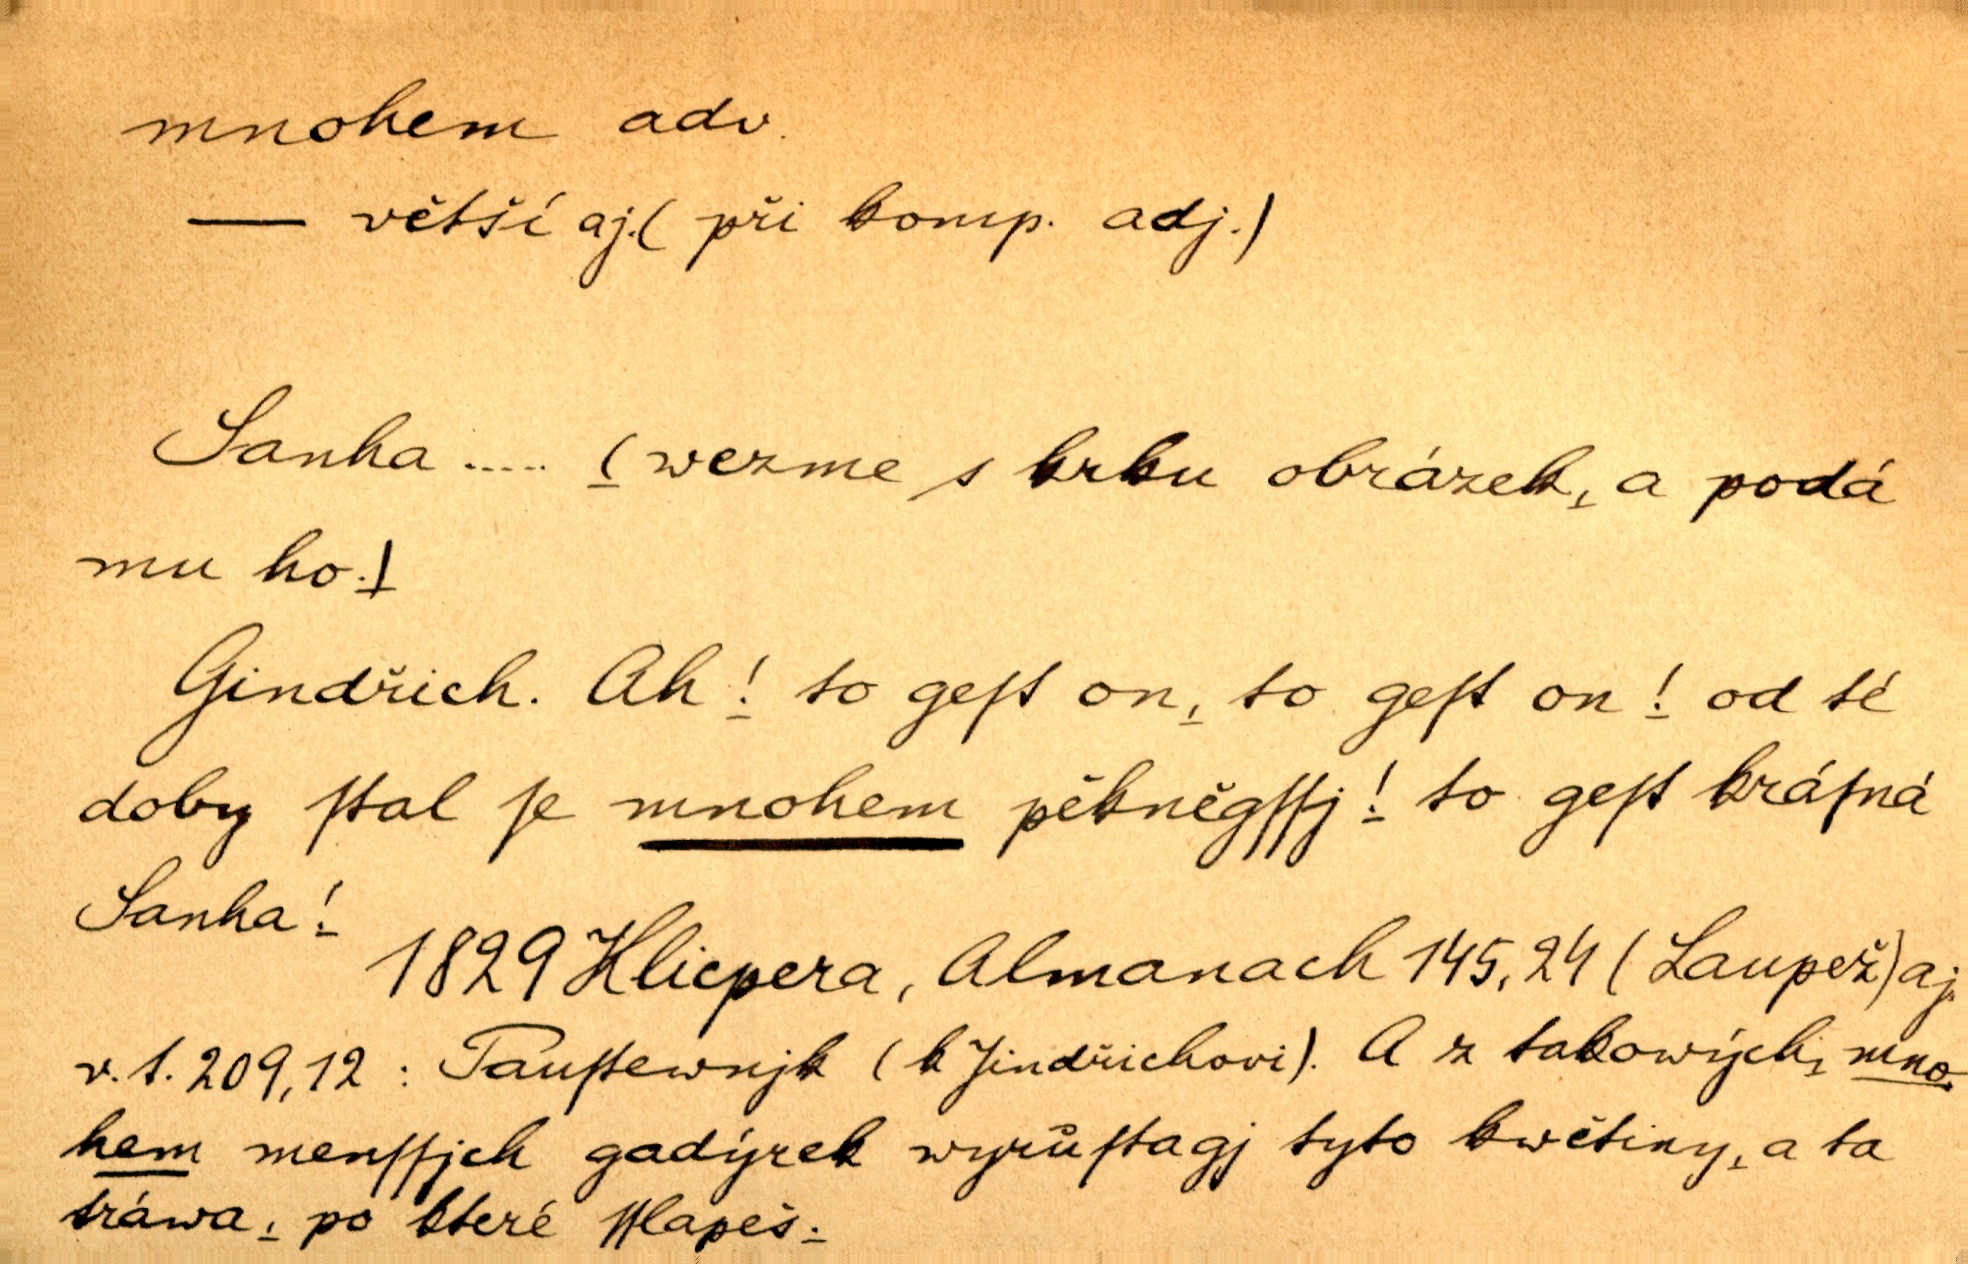 mnohem adv.
— větší aj. (při komp. adj.)
Sanha ..... (wezme s krku obrázek, a podá
mu ho.)
Gindřich. Ah! to geſt on, to geſt on! od té
doby ſtal ſe mnohem pěkněgſſj! to geſt kráſná
Sanha!
1829 Klicpera, Almanach 145,24 (Laupež) aj.
v. t. 209,12 : Pauſtewnjk (k Jindřichovi). A z takowých, mno-
hem menſſjch gadýrek wyrůſtagj tyto kwětiny, a ta
tráwa, po které ſſlapeš.